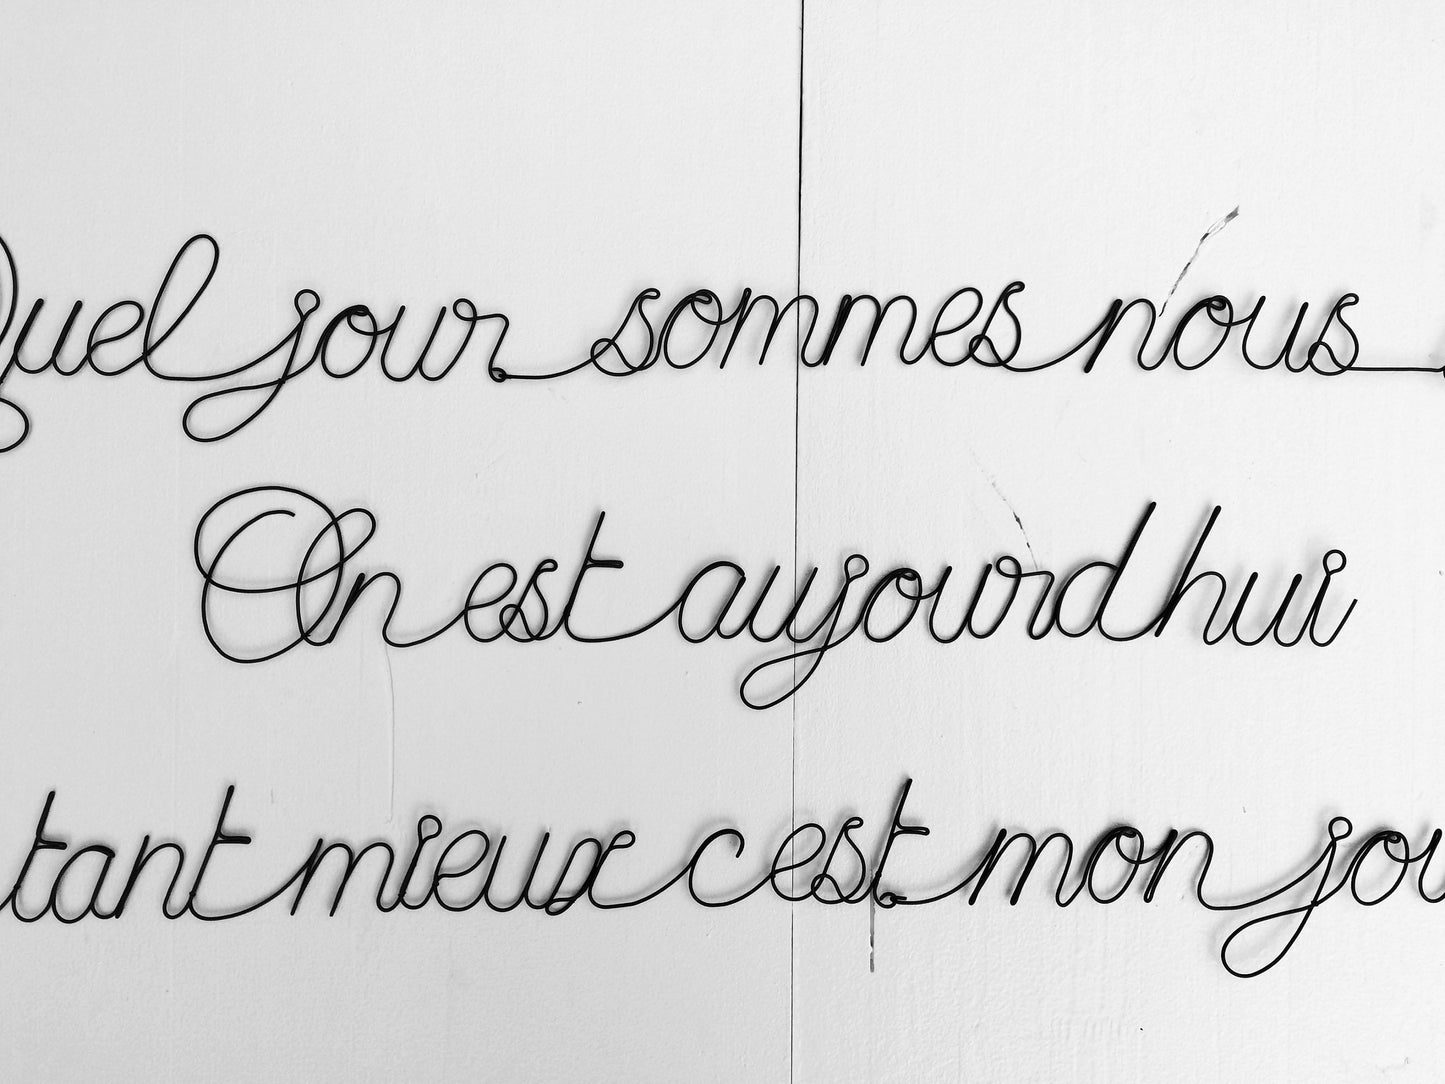 Quel jour sommes nous
On est aujourdhui
tant mieux cest mon jou